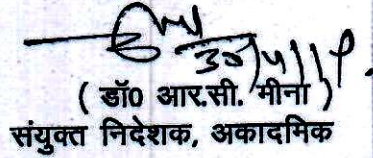 ( डॉ0 आर.सी. मीना )
संयुक्त निदेशक, अकादमिक